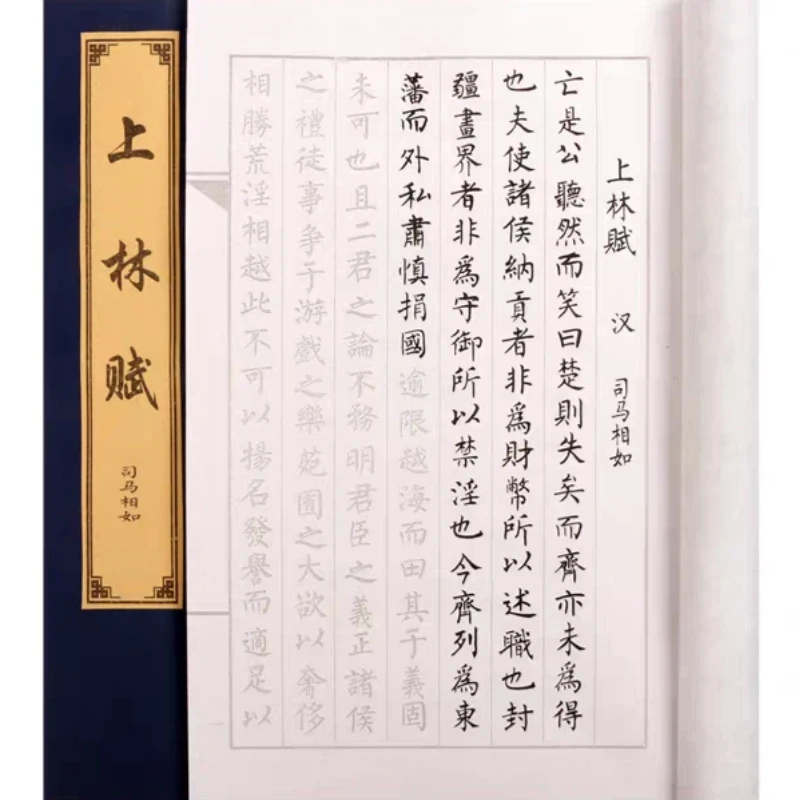 上林赋
司马相如
上林赋 汉 司马相如
亡是公聽然而笑曰楚則失矣而齊亦未爲得
也夫使諸侯納貢者非爲財幣所以述職也封
疆畫界者非爲守御所以禁淫也今齊列爲東
藩而外私肅慎捐國逾限越海而田其于義固
未可也且二君之論不務明君臣之義正諸侯
之禮徒事争于游戲之樂苑囿之大欲以奢侈
相勝荒淫相越此不可以揚名發譽而適足以